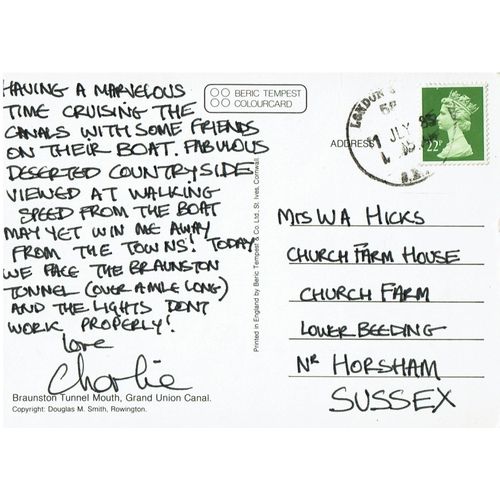 HAVING A MARVELOUS
TIME CRUISING THE
CANALS WITH SOME FRIENDS
ON THEIR BOAT. FABULOUS
DESERTED COUNTRYSIDE
VIEWED AT WALKING
SPEED FROM THE BOAT
MAY YET WIN ME AWAY
FROM THE TOWNS! TODAY
WE FACE THE BRAUNSTON
TUNNEL (OVER A MILE LONG)
AND THE LIGHTS DON'T
WORK PROPERLY!
love
Charlie
Braunston Tunnel Mouth, Grand Union Canal.
Copyright: Douglas M. Smith, Rowington.
BERIC TEMPEST
COLOURCARD
Printed in England by Beric Tempest & Co. Ltd., St. Ives, Cornwall.
ADDRESS
LONDON
1 JULY
22P
MRS W A HICKS
CHURCH FARM HOUSE
CHURCH FARM
LOWER BEEDING
NR HORSHAM
SUSSEX